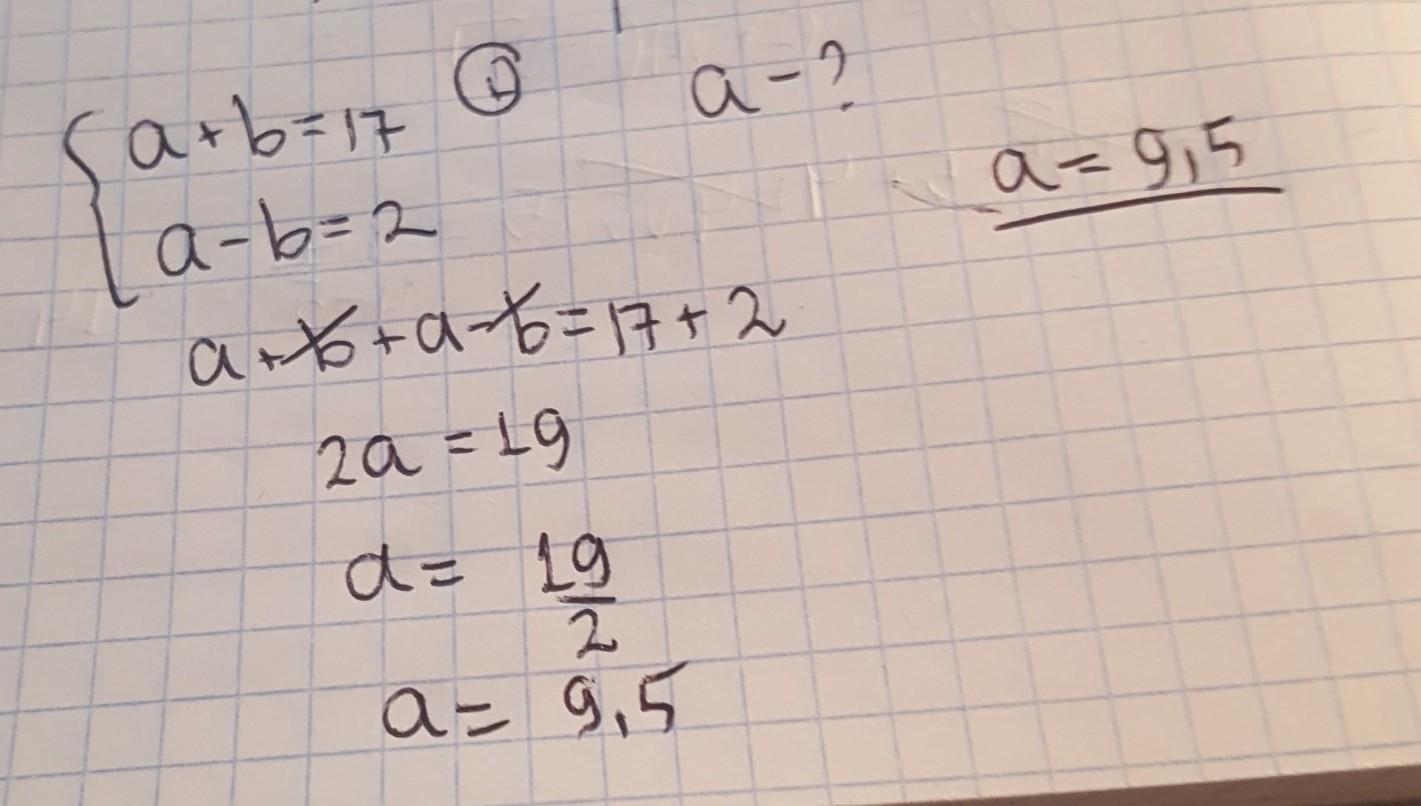 a + b = 17 ⊕ a - ?
a - b = 2
a = 9,5
a + b + a - b = 17 + 2
2a = 19
a = 19/2
a = 9,5